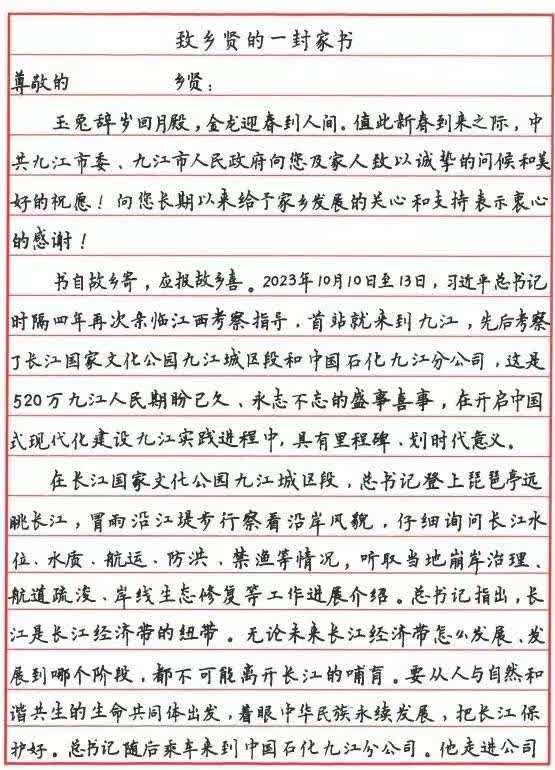 致乡贤的一封家书
尊敬的 乡贤：
玉兔辞岁回月殿，金龙迎春到人间。值此新春到来之际，中
共九江市委、九江市人民政府向您及家人致以诚挚的问候和美
好的祝愿！向您长期以来给予家乡发展的关心和支持表示衷心
的感谢！
书自故乡寄，应报故乡喜。2023年10月10日至13日，习近平总书记
时隔四年再次亲临江西考察指导，首站就来到九江，先后考察
了长江国家文化公园九江城区段和中国石化九江分公司，这是
520万九江人民期盼已久、永志不忘的盛事喜事，在开启中国
式现代化建设九江实践进程中，具有里程碑、划时代意义。
在长江国家文化公园九江城区段，总书记登上琵琶亭远
眺长江，冒雨沿江堤步行察看沿岸风貌，仔细询问长江水
位、水质、航运、防洪、禁渔等情况，听取当地崩岸治理、
航道疏浚、岸线生态修复等工作进展介绍。总书记指出，长
江是长江经济带的纽带。无论未来长江经济带怎么发展、发
展到哪个阶段，都不可能离开长江的哺育。要从人与自然和
谐共生的生命共同体出发，着眼中华民族永续发展，把长江保
护好。总书记随后乘车来到中国石化九江分公司。他走进公司